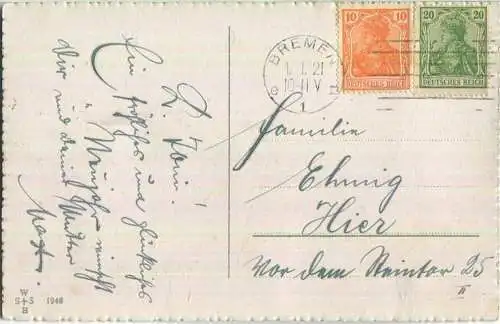 L. Toni!
Ein fröhliches und glückliches
Neujahr wünscht
Dir und deiner Mutter
W
S+S 1946
B
BREMEN
1. 1. 21
10-11 V
1
10 10
DEUTSCHES REICH
20 20
DEUTSCHES REICH
Familie
Ehmig
Hier
Vor dem Steintor 25
II